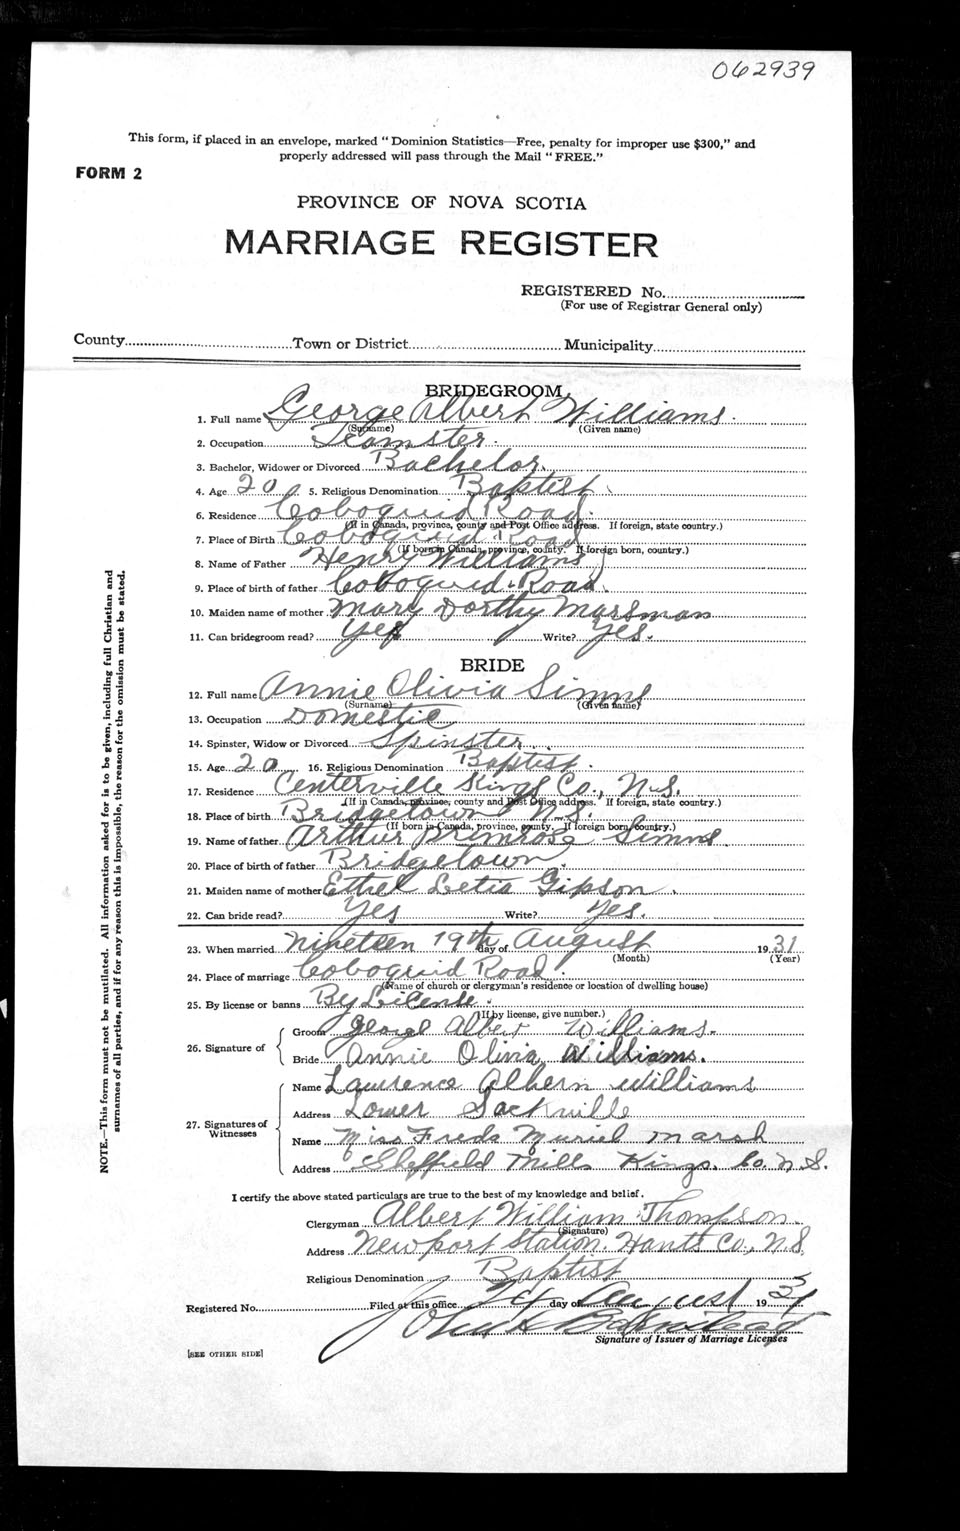 062939
This form, if placed in an envelope, marked "Dominion Statistics—Free, penalty for improper use $300," and
properly addressed will pass through the Mail "FREE."
FORM 2
PROVINCE OF NOVA SCOTIA
MARRIAGE REGISTER
REGISTERED No.
(For use of Registrar General only)
County Town or District Municipality
BRIDEGROOM
1. Full name George Albert Williams
(Surname) (Given name)
2. Occupation Teamster
3. Bachelor, Widower or Divorced Bachelor
4. Age 20 5. Religious Denomination Baptist
6. Residence Coboquid Road
(If in Canada, province, county and Post Office address. If foreign, state country.)
7. Place of Birth Coboquid Road
(If born in Canada, province, county. If foreign born, country.)
8. Name of Father Henry Williams
9. Place of birth of father Coboquid Road
10. Maiden name of mother Mary Dorthy Marsman
11. Can bridegroom read? Yes Write? Yes.
BRIDE
12. Full name Annie Olivia Simms
(Surname) (Given name)
13. Occupation Domestic
14. Spinster, Widow or Divorced Spinster
15. Age 20 16. Religious Denomination Baptist
17. Residence Centerville Kings Co., N.S.
(If in Canada, province, county and Post Office address. If foreign, state country.)
18. Place of birth Bridgetown N.S.
(If born in Canada, province, county. If foreign born, country.)
19. Name of father Arthur Primrose Simms
20. Place of birth of father Bridgetown
21. Maiden name of mother Ethel Letia Gipson
22. Can bride read? Yes Write? Yes.
23. When married Nineteen 19th day of August 1931
(Month) (Year)
24. Place of marriage Coboquid Road
(Name of church or clergyman's residence or location of dwelling house)
25. By license or banns By License
(If by license, give number.)
26. Signature of
Groom George Albert Williams.
Bride Annie Olivia Williams.
27. Signatures of Witnesses
Name Lawrence Albern Williams
Address Lower Sackville
Name Miss Freda Muriel Marsh
Address Sheffield Mills Kings. Co. N.S.
I certify the above stated particulars are true to the best of my knowledge and belief.
Clergyman Albert William Thompson
(Signature)
Address Newport Station, Hants Co., N.S.
Religious Denomination Baptist
Registered No. Filed at this office 24 day of August 1931
John
Signature of Issuer of Marriage Licenses
[SEE OTHER SIDE]
NOTE.—This form must not be mutilated. All information asked for is to be given, including full Christian and
surnames of all parties, and if for any reason this is impossible, the reason for the omission must be stated.